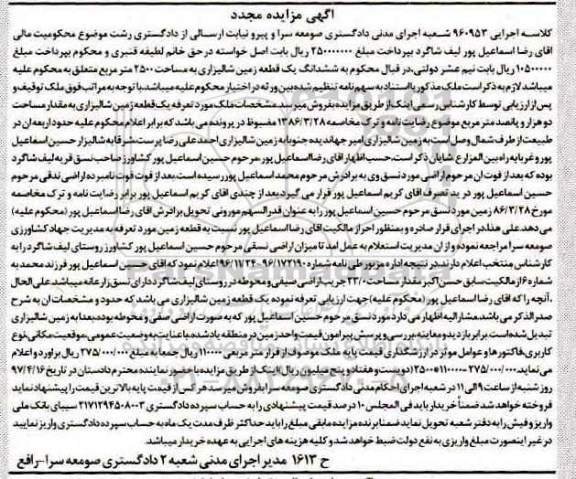 آگهی مزایده مجدد
کلاسه اجرایی ۹۶۰۹۵۳ شعبه اجرای مدنی دادگستری صومعه سرا و پیرو نیابت ارسالی از دادگستری رشت موضوع محکومیت مالی
آقای رضا اسماعیل پور لیف شاگرد بپرداخت مبلغ ۲۵۰۰۰۰۰۰۰ ریال بابت اصل خواسته در حق خانم لطیفه قنبری و محکوم بپرداخت مبلغ
۱۰۵۰۰۰۰۰ ریال بابت نیم عشر دولتی، در قبال محکوم به ششدانگ یک قطعه زمین شالیزاری به مساحت ۲۵۰۰ متر مربع متعلق به محکوم علیه
میباشد لازم به ذکر است ملک مذکور باستناد به سهم نامه تنظیم شده بین ورثه در اختیار محکوم علیه میباشد. با توجه به مراتب فوق ملک توقیف و
پس از ارزیابی توسط کارشناس رسمی اینک از طریق مزایده بفروش میرسد. مشخصات ملک مورد تعرفه یک قطعه زمین شالیزاری به مقدار مساحت
دو هزار و پانصد متر مربع موضوع رضایت نامه و ترک مخاصمه ۱۳۸۶/۳/۲۸ مضبوط در پرونده می باشد که برابر اعلام محکوم علیه حدود اربعه ان در
طبیعت از طرف شمال وصل است به زمین شالیزاری امیر جهاندیده جنوبا به زمین شالیزاری احمد علی رضا پرست شرقا به شالیزار حسین اسماعیل
پور و غربا به راه بین المزارع شایان ذکر است، حسب اظهار آقای رضا اسماعیل پور مرحوم حسین اسماعیل پور کشاورز صاحب نسق قریه لیف شاگرد
بوده که بعد از فوت ان مرحوم اراضی مورد نسق وی به برادرش مرحوم محمد اسماعیل پور رسیده است. بعد از فوت فوت نامبرده اراضی نسقی مرحوم
حسین اسماعیل پور در ید تصرف آقای کریم اسماعیل پور قرار می گیرد. بعد از چندی آقای کریم اسماعیل پور برابر رضایت نامه و ترک مخاصمه
مورخ ۸۶/۳/۲۸ زمین مورد نسق مرحوم حسین اسماعیل پور را به عنوان قدر السهم موروثی تحویل برادرش آقای رضا اسماعیل پور (محکوم علیه)
می دهد. علی هذا در اجرای قرار صادره و بمنظور احراز مالکیت آقای رضا اسماعیل پور نسبت به قطعه زمین مورد تعرفه به مدیریت جهاد کشاورزی
صومعه سرا مراجعه نموده و از ان مدیریت استعلام به عمل امد تا میزان اراضی نسقی مرحوم حسین اسماعیل پور کشاورز روستای لیف شاگرد را به
کارشناس منتخب اعلام دارند. در نتیجه اداره مزبور طی نامه شماره ۹۶/۱۷۲۱۹۰-۹۶/۱۱/۲۴ اعلام نمود که آقای حسین اسماعیل پور فرزند محمد به
شماره ۶ از مالکیت سابق حسن اکبر مقدار مساحت ۲۳/۰۰ جریب اراضی صیفی و محوطه در روستای لیف شاگرد دارای نسق زارعانه میباشد. علی الحال
آنچه را که آقای رضا اسماعیل پور (محکوم علیه) جهت ارزیابی تعرفه نموده یک قطعه زمین شالیزاری می باشد که حدود و مشخصات ان به شرح
صدر الذکر می باشد. مشارالیه اظهار می دارد مورد نسق مرحوم حسین اسماعیل پور که به صورت اراضی صیفی و محوطه بوده، بعدا به زمین شالیزاری
تبدیل شده است. برابر بازدید و معاینه و بررسی و پرسش پیرامون قیمت واحد زمین در منطقه یاد شده، با عنایت به وضعیت عمومی، موقعیت مکانی، نوع
کاربری، فاکتورها و عوامل موثر در ارزشگذاری قیمت پایه ملک موصوف از قرار متر مربعی ۱۱۰۰۰۰ ریال جمعا به مبلغ ۲۷۵/۰۰۰/۰۰۰ ریال براورد و اعلام
می نماید. ۲۷۵/۰۰۰/۰۰۰=۱۱۰۰۰۰*۲۵۰۰ (دویست و هفتاد و پنج میلیون ریال) اینک از طریق مزایده با حضور نماینده محترم دادستان در تاریخ ۹۷/۴/۱۶
روز شنبه از ساعت ۹ الی ۱۱ در شعبه اجرای احکام مدنی دادگستری صومعه سرا بفروش میرسد هر کس از قیمت پایه بالاترین قیمت را پیشنهاد نماید
فروخته خواهد شد ضمنا خریدار باید فی المجلس ۱۰ درصد قیمت پیشنهادی را به حساب سپرده دادگستری ۲۱۷۱۲۹۴۵۰۸۰۰۳ سیبای بانک ملی
واریز و فیش را به دفتر شعبه تحویل نماید ضمنا برنده مزایده مابقی مبلغ را باید حداکثر ظرف مدت یک ماه به حساب سپرده دادگستری واریز نمایید
در غیر اینصورت مبلغ واریزی به نفع دولت ضبط خواهد شد و کلیه هزینه های اجرایی به عهده خریدار میباشد.
ح ۱۶۱۳ مدیر اجرای مدنی شعبه ۲ دادگستری صومعه سرا-رافع